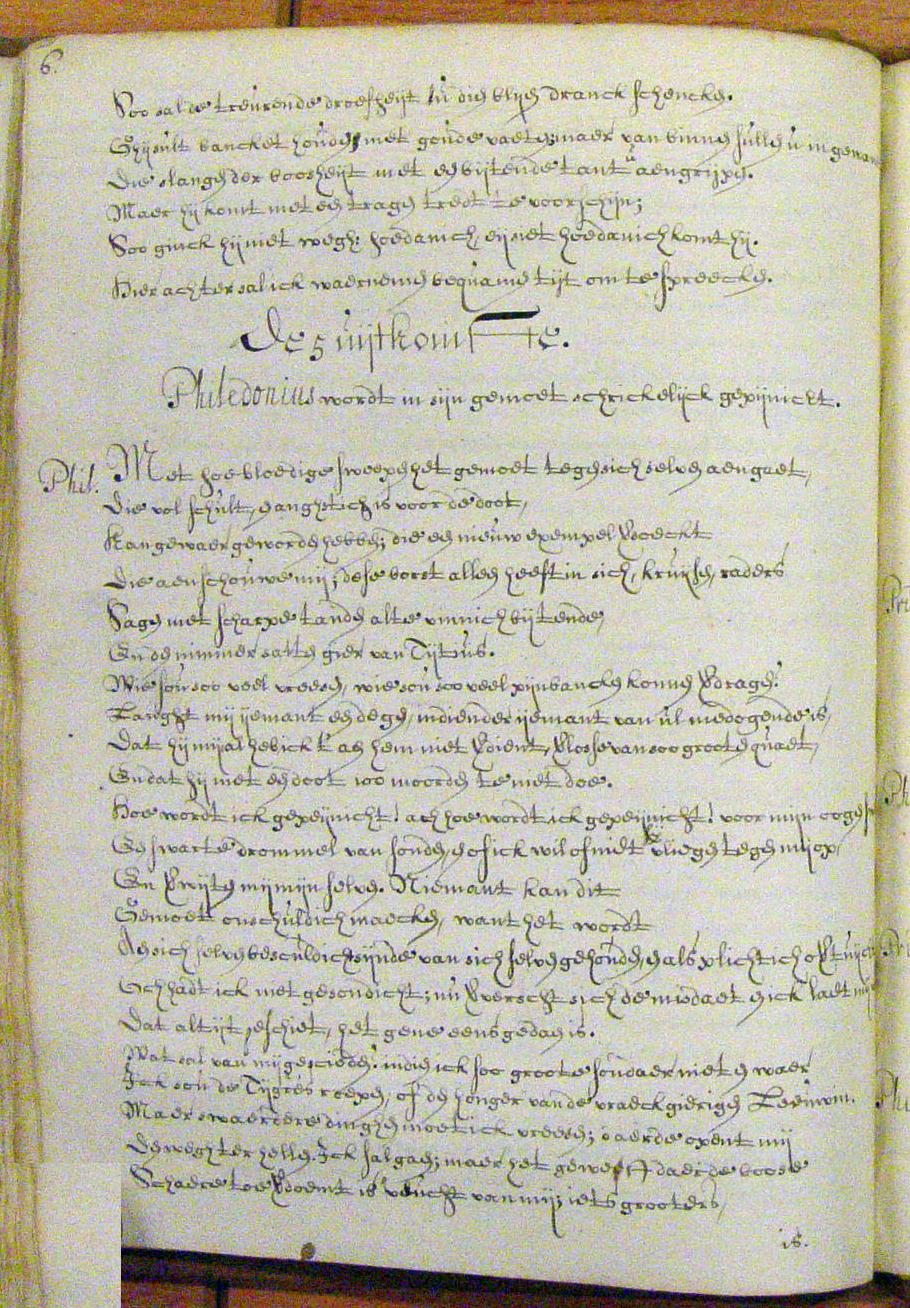 6.
Soo sal de treurende droefheijt u dien blijen dranck schencken.
Ghij sult bancket houden met goude vaeten: maer van binnen sullen u
Die slangen der boosheijt met een bijtende tant u aengrijpen.
Maer hij komt met een tragen tredt te voorschijn;
Soo ginck hij niet wegh: hoedanich, eij siet hoedanich komt hij.
Hier achter sal ick waernemen bequame tijt om te spreecken.
De 5 uijtkomste.
Philedonius wordt in sijn gemoet schrickelijck gepijnicht.
Phil. Met hoe bloedige sweepen het gemoet tegen sich selven aengaet,
Die vol schult, en anghstich is voor de doot,
Kan gewaer geworden hebben; die een nieuw exempel soeckt
Die aenschouwe mij; dese borst alleen heeft in sich, kruijsen, raders
Sagen met scharpe tanden al te vinnich bijtende,
En den nimmer satten gier van Tijtius.
Wie sou soo veel vreesen, wie sou soo veel pijnbancken konnen verdragen?
Langht mij ijemant een degen, indien der ijemant van ul medogende is,
Dat hij mij al heb ick 't aen hem niet verdient, verlosse van soo groot een quaet,
En dat hij met een doot 100 moorden te niet doe.
Hoe wordt ick gepeijnicht! ach hoe wordt ick gepeijnicht! voor mijn oogen
Een swarte drommel van sonden, en of ick wil of niet vliegen tegen mij op,
En verwijten mij mijn selven. Niemant kan dit
Gemoet onschuldich maecken, want het wordt
Aen sich selven beschuldich sijnde van sich selven gehouden, en als plichtich
Och hadt ick niet gesondicht; nu sich de misdaet en ick laet mij
Dat altijt geschiet, het gene eens gedaen is.
Wat sal van mij geschieden? indien ick soo groote sondaer niet en waer
Ick sou de Tijgers roepen, of den honger van de vraeckgierigen Leeuwin.
Maer swaerdere dinghen moet ick vreesen; d'aerde opent mij
Den wegh ter hellen. Ick sal gaen; maer het gewest daer de boose
Schaere toe verdoemt is vlucht van mij; iets grooters,
is.